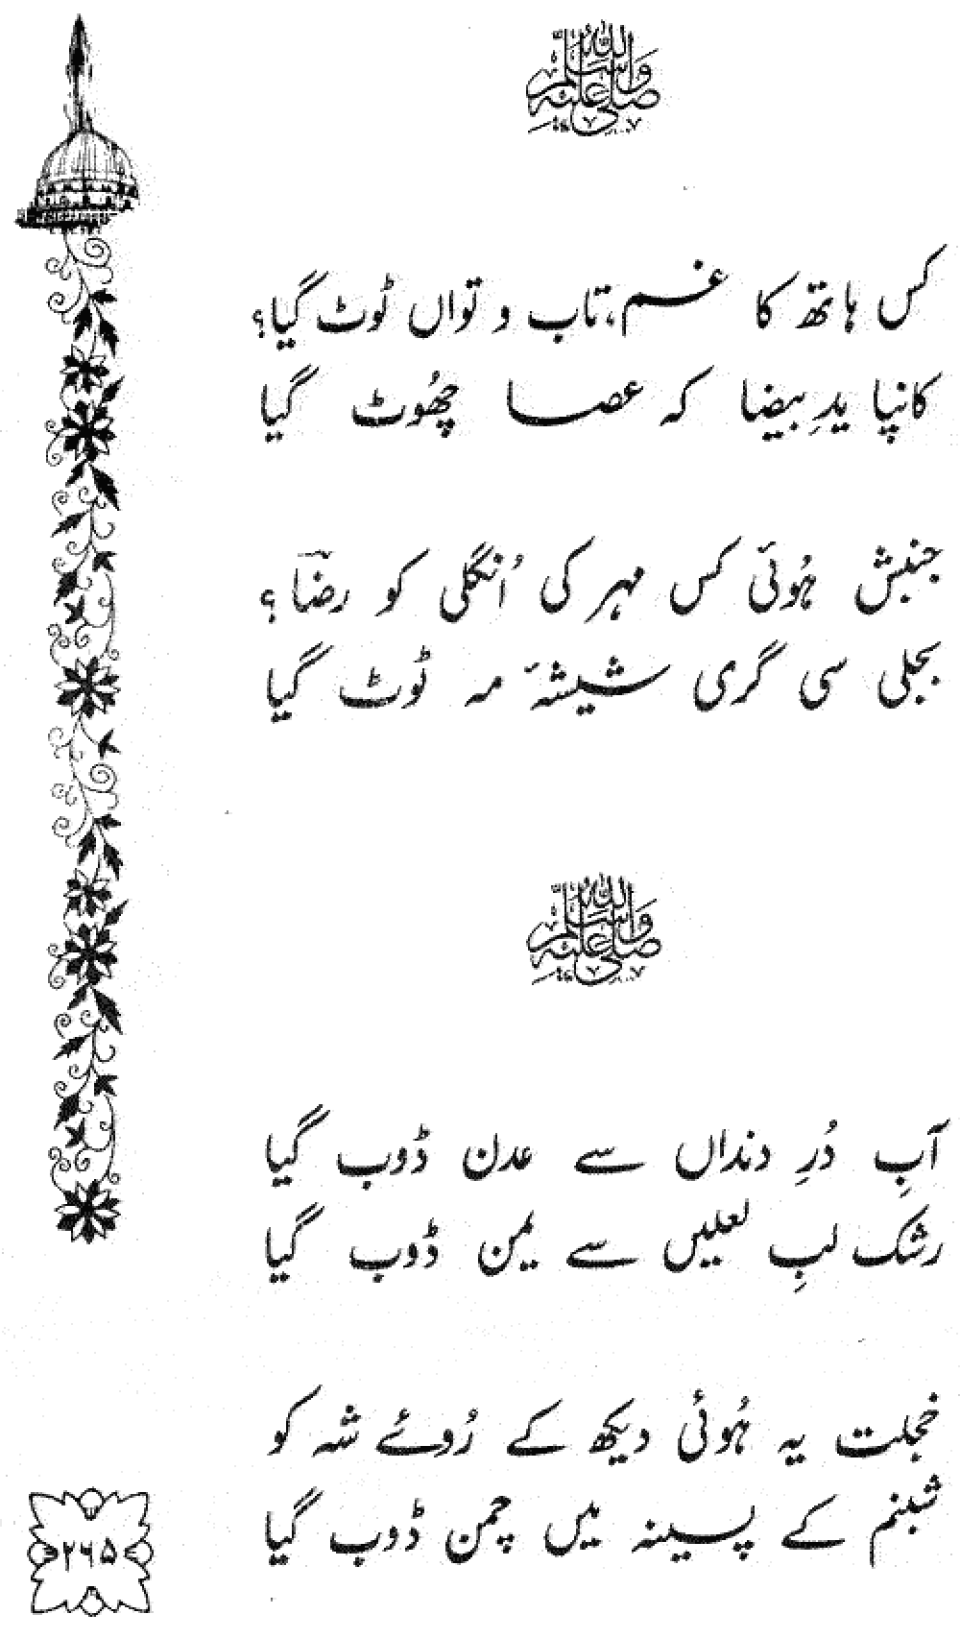 صلی اللہ علیہ وسلم
کس ہاتھ کا غم، تاب و تواں ٹوٹ گیا؟
کانپا یدِ بیضا کہ عصا چھُوٹ گیا
جنبش ہُوئی کس مہر کی اُنگلی کو رضاؔ ؟
بجلی سی گری شیشۂ مہ ٹوٹ گیا
صلی اللہ علیہ وسلم
آبِ دُرِ دنداں سے عدن ڈوب گیا
رشک لبِ لعلیں سے یمن ڈوب گیا
خجلت یہ ہُوئی دیکھ کے رُوئے شہ کو
شبنم کے پسینہ میں چمن ڈوب گیا
۲۶۵